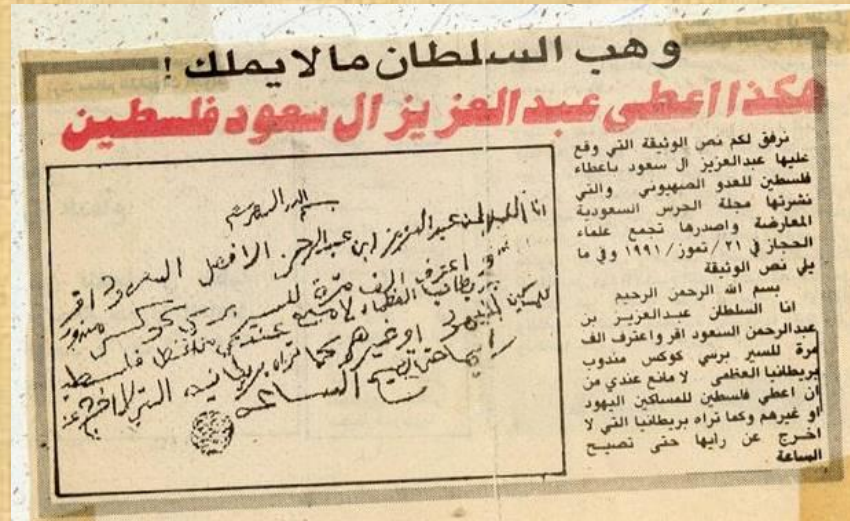 وهب السلطان مالايملك !
هكذا اعطى عبدالعزيز ال سعود فلسطين
نرفق لكم نص الوثيقة التي وقع
عليها عبدالعزيز ال سعود باعطاء
فلسطين للعدو الصهيوني والتي
نشرتها مجلة الحرس السعودية
المعارضة واصدرها تجمع علماء
الحجاز في ٢١/تموز/١٩٩١ وفي ما
يلي نص الوثيقة
بسم الله الرحمن الرحيم
انا السلطان عبدالعزيز بن
عبدالرحمن السعود اقر واعترف الف
مرة للسير برسي كوكس مندوب
بريطانيا العظمى لا مانع عندي من
ان اعطي فلسطين للمساكين اليهود
او غيرهم وكما تراه بريطانيا التي لا
اخرج عن رايها حتى تصيح
الساعة
بسم الله الرحمن الرحيم
انا السلطان عبد العزيز ابن عبد الرحمن السعود اقر
واعترف الف مرة للسير برسي كوكس مندوب
بريطانيا العظمى لا مانع عندي فلسطين
او غيرهم كما تراه بريطانيا التي لا اخرج عن
رايها حتى تصيح الساعة